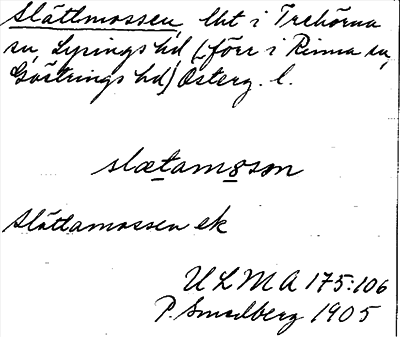 Slättmossen, lht i Trehörna
sn, Lysings hd, (förr i Rinna sn,
Göstrings hd) Österg. l.
slætamɷsɷn
Slättamossen ek
ULMA 175:106
P. Smedberg 1905